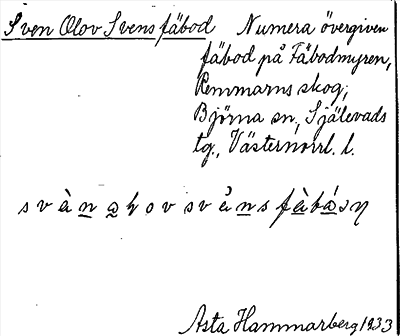 Sven Olov Svensfäbod Numera övergiven
fäbod på Fäbodmyren,
Remmarns skog,
Björna sn, Själevads
tg., Västernorrl. l.
Asta Hammarberg 1933